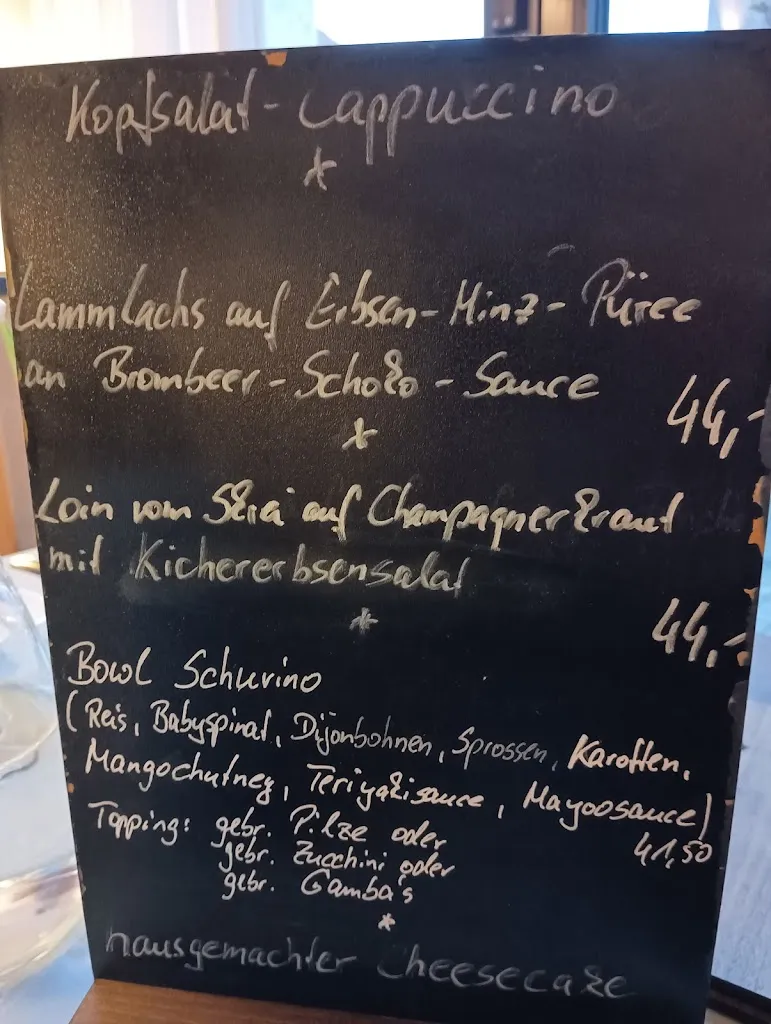 Kopfsalat - Cappuccino
*
Lammlachs auf Erbsen-Minz-Püree
an Brombeer-Schoko-Sauce
44,-
*
Loin vom Skrei auf Champagnerkraut
mit Kichererbsensalat
44,-
*
Bowl Schurino
(Reis, Babyspinat, Dijonbohnen, Sprossen, Karotten,
Mangochutney, Teriyakisauce, Mayoosauce)
41,50
Topping: gebr. Pilze oder
gebr. Zucchini oder
gebr. Gamba's
*
hausgemachter Cheesecake